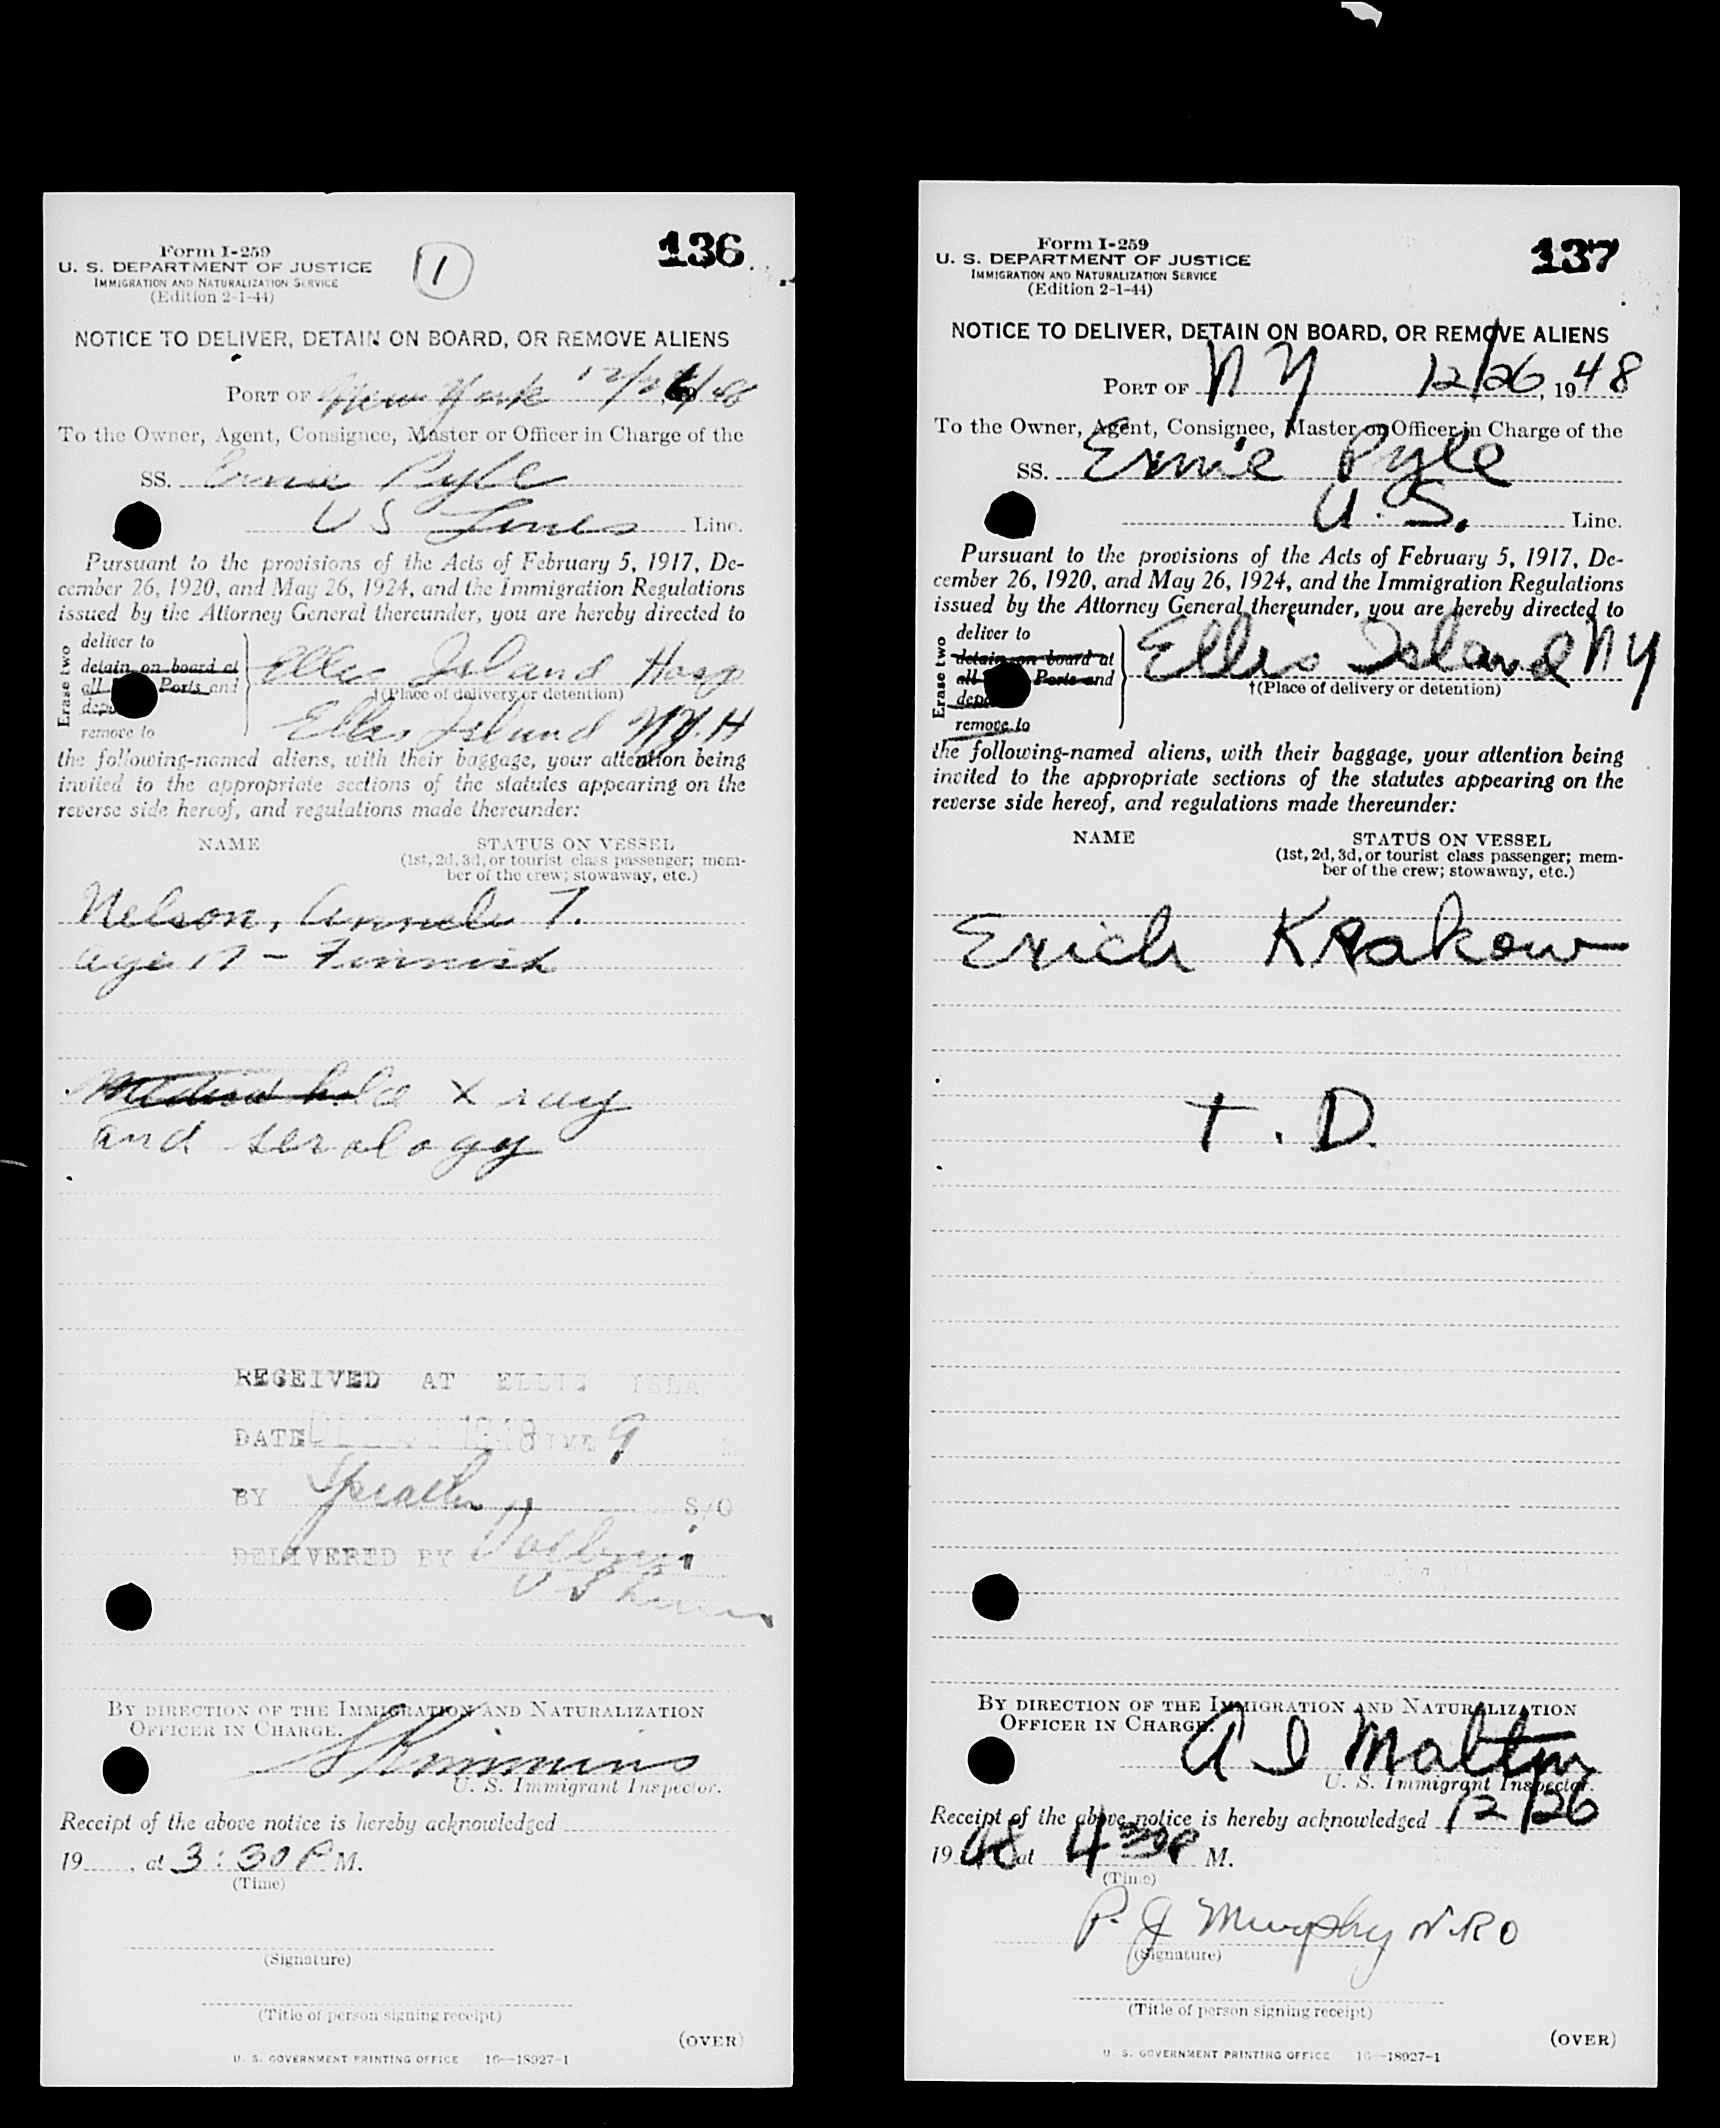 Form I-259
U. S. DEPARTMENT OF JUSTICE
IMMIGRATION AND NATURALIZATION SERVICE
(Edition 2-1-44)
1
136
NOTICE TO DELIVER, DETAIN ON BOARD, OR REMOVE ALIENS
PORT OF New York 12/26/48
To the Owner, Agent, Consignee, Master or Officer in Charge of the
SS. Ernie Pyle
US Lines Line.
Pursuant to the provisions of the Acts of February 5, 1917, De-
cember 26, 1920, and May 26, 1924, and the Immigration Regulations
issued by the Attorney General thereunder, you are hereby directed to
Erase two
deliver to
detain on board at
all Ports and
remove to
Ellis Island Hosp
†(Place of delivery or detention)
Ellis Island NY. H
the following-named aliens, with their baggage, your attention being
invited to the appropriate sections of the statutes appearing on the
reverse side hereof, and regulations made thereunder:
NAME
STATUS ON VESSEL
(1st, 2d, 3d, or tourist class passenger; mem-
ber of the crew; stowaway, etc.)
Nelson, T.
age 17 - Finnish
X ray
and serology
RECEIVED AT ELLIS ISLA
DATE 1948 TIME 9
BY S/O
DELIVERED BY
US Lines
BY DIRECTION OF THE IMMIGRATION AND NATURALIZATION
OFFICER IN CHARGE.
U. S. Immigrant Inspector.
Receipt of the above notice is hereby acknowledged
19 , at 3:30 P M.
(Time)
(Signature)
(Title of person signing receipt)
(OVER)
U. S. GOVERNMENT PRINTING OFFICE 16—18927-1
Form I-259
U. S. DEPARTMENT OF JUSTICE
IMMIGRATION AND NATURALIZATION SERVICE
(Edition 2-1-44)
137
NOTICE TO DELIVER, DETAIN ON BOARD, OR REMOVE ALIENS
PORT OF NY 12/26, 1948
To the Owner, Agent, Consignee, Master or Officer in Charge of the
SS. Ernie Pyle
U.S. Line.
Pursuant to the provisions of the Acts of February 5, 1917, De-
cember 26, 1920, and May 26, 1924, and the Immigration Regulations
issued by the Attorney General thereunder, you are hereby directed to
Erase two
deliver to
detain on board at
all Ports and
remove to
Ellis Island NY
†(Place of delivery or detention)
the following-named aliens, with their baggage, your attention being
invited to the appropriate sections of the statutes appearing on the
reverse side hereof, and regulations made thereunder:
NAME
STATUS ON VESSEL
(1st, 2d, 3d, or tourist class passenger; mem-
ber of the crew; stowaway, etc.)
Erich Krakow
T. D.
BY DIRECTION OF THE IMMIGRATION AND NATURALIZATION
OFFICER IN CHARGE.
U. S. Immigrant Inspector.
Receipt of the above notice is hereby acknowledged 12/26
1948 at 4 30 P M.
(Time)
P. J Murphy
(Signature)
(Title of person signing receipt)
(OVER)
U. S. GOVERNMENT PRINTING OFFICE 16—18927-1